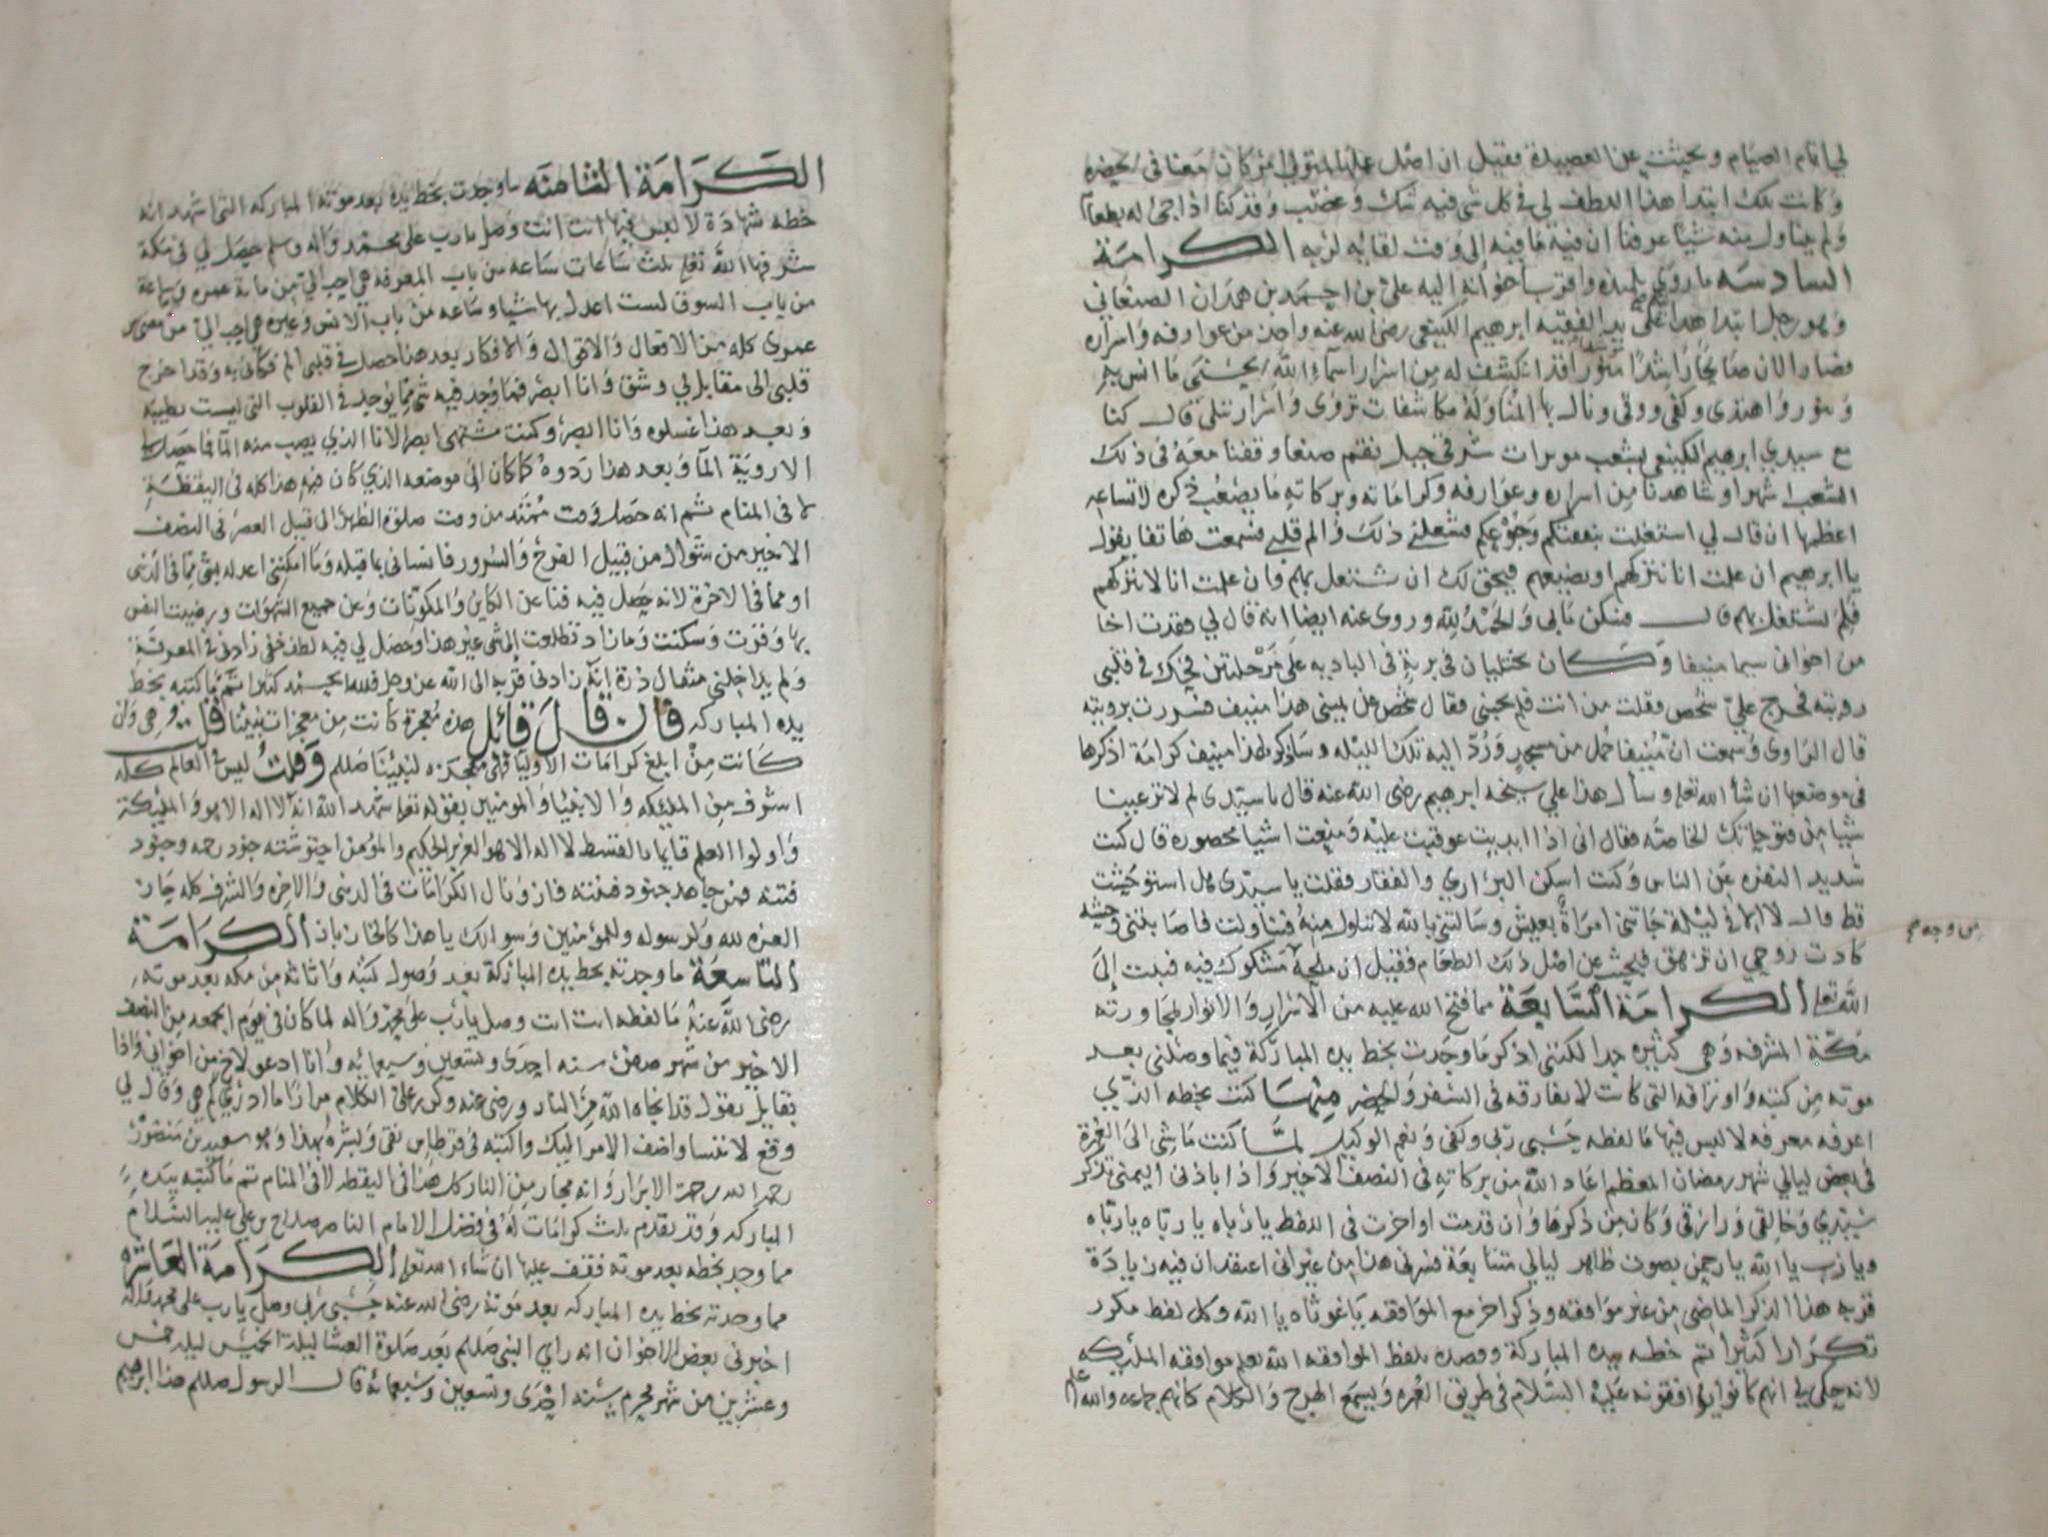 لي ايام الصيام وبحيثت عن العصيدة فقيل ان اصل عملها لمتولي من كان معنا في الحضره
وكانت تلك ابتدا هذا اللطف لي في كل شي فيه شك وغضب وقد كنا اذا جئ له بطعام
ولم يتناول منه شيا عرفنا ان فيه ما فيه الى وقت لقائه لربه الكرامة
السادسه ما روى تلميذه واقرب اخوانه اليه علي بن احمد بن همدان الصنعاني
وهو رجل ابتدا هداه على يد الفقيه ابرهيم الكينعي رضي الله عنه واخذ من عوارفه واسراره
فصار الان صالحا راشدا منورا قد انكشف له من اسرار اسماء الله الحسنى ما انس به
ونور واهتدى وكفي ووقي ونال بها المناوله مكاشفات تروى واسرار تتلى قال كنا
مع سيدي ابرهيم الكينعي بشعب شرقي جبل نقم صنعا وقفنا معه في ذلك
الشعب شهرا وشاهدنا من اسراره وعوارفه وكراماته وبركاته ما يصعب ذكره لاتساعه
اعظمها ان قال لي استغلت بنفقتكم وجوعكم فشغلني ذلك والم قلبي فسمعت هاتفا يقول
يا ابرهيم ان علمت انا نتركهم او نضيعهم فيحق لك ان تشتغل بهم وان علمت انا لا نتركهم
فلم تشتغل بهم قال فسكن ما بي والحمد لله وروى عنه ايضا انه قال لي فقدت اخا
من اخواني سيما منيفا وكان يختليان في برية في البادية على مرحلتين فتحرك في قلبي
رويته فخرج علي شخص فقلت من انت فلم يجبني فقال شخص عن يميني هذا منيف فسررت برويته
قال الراوى وسمعت ان منيفا حمل من مسجد ورد اليه تلك الليله وساذكر لهذا منيف كرامة اذكرها
في موضعها ان شا الله تعلى وسال هذا علي شيخه ابرهيم رضي الله عنه قال يا سيدي لم لا تزعبنا
شيا من فتوحاتك الخاصه فقال اني اذا ابديت عوقبت عليه ومنعت اشيا محصورة قال كنت
شديد النفره عن الناس وكنت اسكن البراري والقفار فقلت يا سيدي هل استوحشت
قط قال لا انما في ليلة جاتني امراة بعيش وسالتني بالله لاتناول منه فتناولت فاصابتني وحشه
من وجه
كادت روحي ان تزهق فبحثت عن اصل ذلك الطعام فقيل ان ملحه مشكوك فيه فبت الى
الله تعلى الكرامة السابعة مما فتح الله عليه من الاسرار والانوار لمجاورته
مكة المشرفه وهي كثيره جدا لكنني اذكر ما وجدت بخط يده المباركة فيما وصلني بعد
موته من كتبه واوراقه التي كانت لا تفارقه في السفر والحضر منها كتب بخطه الذي
اعرفه معرفه لا لبس فيها ما لفظه حسبي ربي وكفى ونعم الوكيل لما كنت ماشي الى العمرة
في بعض ليالي شهر رمضان المعظم اعاد الله من بركاته في النصف الاخير واذا باذني اليمنى تذكر
سيدي وخالقي ورازقي وكان من ذكرها وان قدمت او اخرت في اللفظ يا رباه يا رباه يا رباه
ويارب يا الله يا رحمن بصوت ظاهر ليالي متتابعة فسرني هذا من غير اني اعتقد ان فيه زيادة
قربه هذا الذكر الماضي من غير موافقه وذكر اخر مع الموافقه يا غوثاه يا الله وكل لفظ مكرر
تكرارا كثيرا تم خطه بيده المباركة وقصده بلفظ الموافقه الله يعلم موافقه المليكه
لانه حكي لي انهم كانوا يرافقونه عليه السلام في طريق العمره ويسمع الهرج والكلام كانهم جماعه والله اعلم
الكرامة الثامنه ما وجدت بخط يده بعد موته المباركه التي اشهد انه
خطه شهادة لا لبس فيها انت انت وصل يا رب على محمد واله وسلم حصل لي في مكة
شرفها الله تعلى ثلث ساعات ساعه من باب المعرفه هي احب الي من ماية عمره وساعة
من باب الشوق لست اعدل بها شيا وساعه من باب الانس وغيره هي احب الي من مضي
عمري كله من الافعال والاقوال والافكار بعد هذا حصل في قلبي الم فكاني به وقد اخرج
قلبي الى مقابل لي وشق وانا ابصر فما وجد فيه شي مما يوجد في القلوب التي ليست بطيبه
وبعد هذا غسلوه وانا ابصر وكنت مشتهي ابصر الانا الذي يصب منه الما فما حصل لي
الا روية الما وبعد هذا ردوه كما كان الى موضعه الذي كان فيه هذا كله في اليقظة
لا في المنام ثم انه حصل وقت ممتد من وقت صلوة الظهر الى قبيل العصر في النصف
الاخير من شوال من قبيل الفرح والسرور فانساني ما قبله وما امكنني اعدله بشي مما في الدنى
او مما في الاخرة لانه حصل فيه فنا عن الكاين والمكونات وعن جميع الشهوات ورضيت النفس
بها وقرت وسكنت وما زادت تطلعت الى شي غير هذا وحصل لي فيه لطف خفي زادني في المعرفة
ولم يداخلني مثقال ذرة انه زادني قربه الى الله عز وجل فلله الحمد كثيرا تم ما كتبه بخط
يده المباركه فان قال قائل هذه معجزة كانت من معجزات نبينا قلت وهي وان
كانت من ابلغ كرامات الاوليا فهي معجزه لنبينا صلم وقلت ليس في العالم كله
اشرف من المليكه والانبيا والمومنين بقوله تعلى شهد الله انه لا اله الا هو والمليكة
واولوا العلم قايما بالقسط لا اله الا هو العزيز الحكيم والمؤمن احتوشته جنود رحمه وجنود
فتنه فمن جاهد جنود فتنته فاز ونال الكرامات في الدنى والاخره والشرف كله حاز
العزه لله ولرسوله وللمؤمنين وسوالك يا هذا كالخازباز الكرامة
التاسعة ما وجدته بخط يده المباركة بعد وصول كتبه واثاثه من مكه بعد موته
رضي الله عنه ما لفظه انت انت وصل يا رب على محمد واله لما كان في يوم الجمعه من النصف
الاخير من شهر صفر سنه احدى وتسعين وسبعمائه وانا ادعو لاخ من اخواني واذا
بقايل يقول قد انجاه الله من النار ورضي عنه وكرر علي الكلام مرارا ما ادري كم هي وقال لي
وقع لا تنسا واضف الامر اليك واكتبه في قرطاس نقي وبشره بهذا وهو سعيد بن منصور
رحمه الله رحمة الابرار وانه مجار من النار كل هذا في اليقظه لا في المنام تم ما كتبه بيده
المباركه وقد تقدم ثلث كرامات له في فضل الامام الناصر صلاح بن علي عليه السلام
مما وجد بخطه بعد موته فقف عليها ان شاء الله تعلى الكرامة العاشره
مما وجدته بخط يده المباركه بعد موته رضي الله عنه حسبي ربي وصل يا رب على محمد واله
اخبرني بعض الاخوان انه راى النبي صلم بعد صلوة العشا ليلة الخميس ليله خمس
وعشرين من شهر محرم سنه احدى وتسعين وسبعمائه قال الرسول صلم هذا ابرهيم